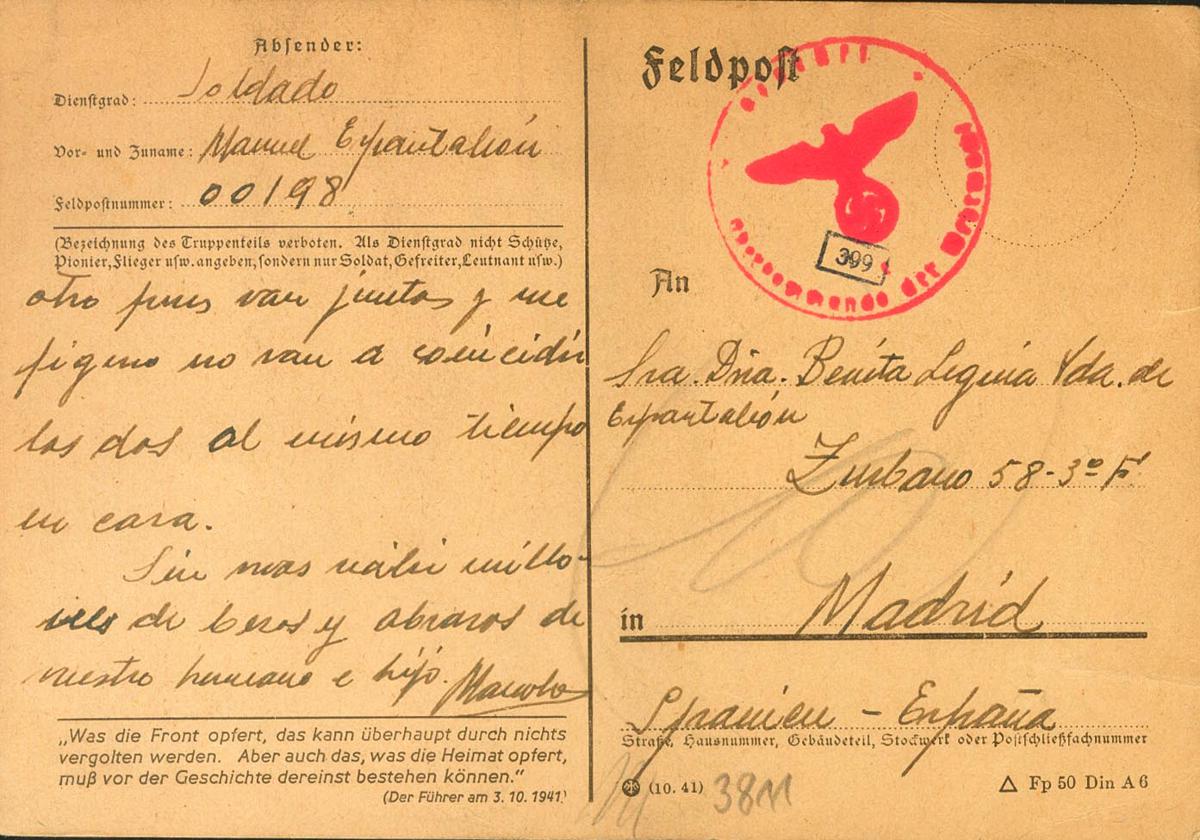 Absender:
Dienstgrad: Soldado
Vor- und Zuname: Manuel Espantaleón
Feldpostnummer: 00198
(Bezeichnung des Truppenteils verboten. Als Dienstgrad nicht Schütze,
Pionier, Flieger usw. angeben, sondern nur Soldat, Gefreiter, Leutnant usw.)
otro pues van juntos y me
figuro no van a coincidir
los dos al mismo tiempo
en casa.
Sin mas millo-
nes de besos y abrazos de
vuestro hermano e hijo. Manolo
„Was die Front opfert, das kann überhaupt durch nichts
vergolten werden. Aber auch das, was die Heimat opfert,
muß vor der Geschichte dereinst bestehen können.“
(Der Führer am 3. 10. 1941)
Feldpost
Oberkommando der Wehrmacht
399
An
Sra. Dña. Benita Vda. de
Espantaleón
Zurbano 58-3º F.
in Madrid
Spanien - España
Straße, Hausnummer, Gebäudeteil, Stockwerk oder Postschließfachnummer
(10. 41) 3811
△ Fp 50 Din A 6